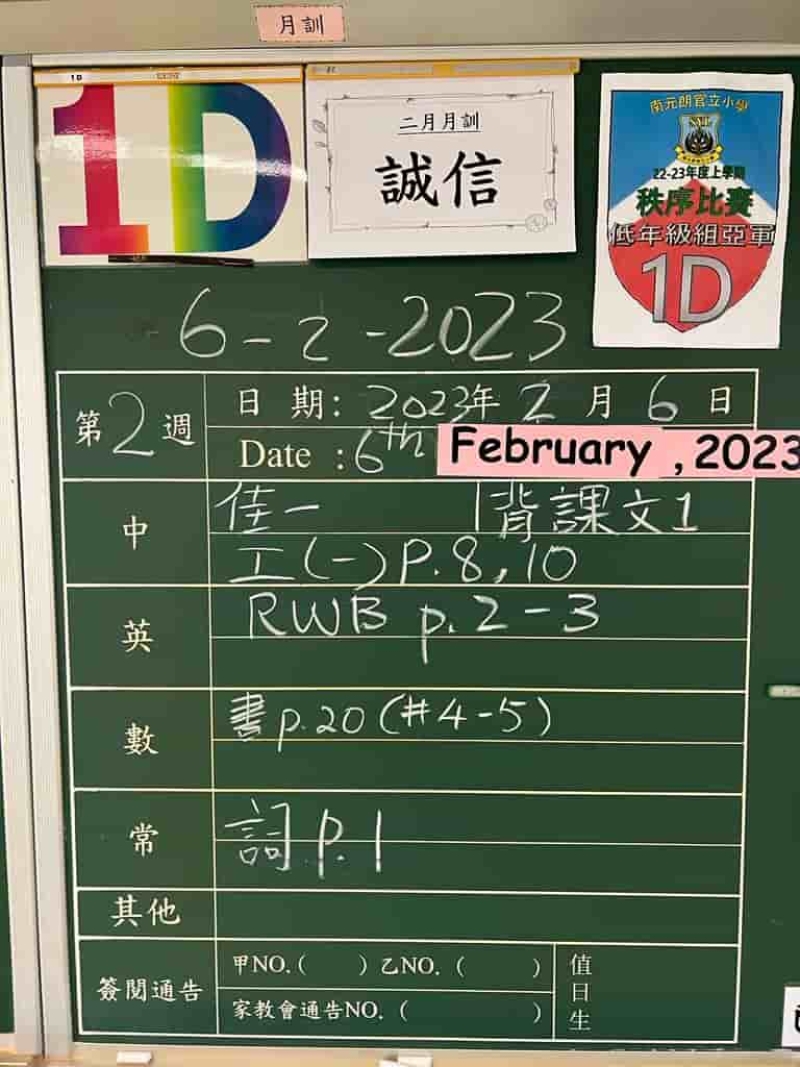 月訓
1D
1D
二月月訓
誠信
南元朗官立小學
22-23年度上學期
秩序比賽
低年級組亞軍
1D
6-2-2023
第2週
日期: 2023年 2月 6日
Date : 6th February , 2023
中
佳一 背課文1
工(一) P.8, 10
英
RWB p.2-3
數
書 p.20 (#4-5)
常
詞 p.1
其他
簽閱通告
甲NO.( ) 乙NO. ( )
家教會通告NO. ( )
值日生